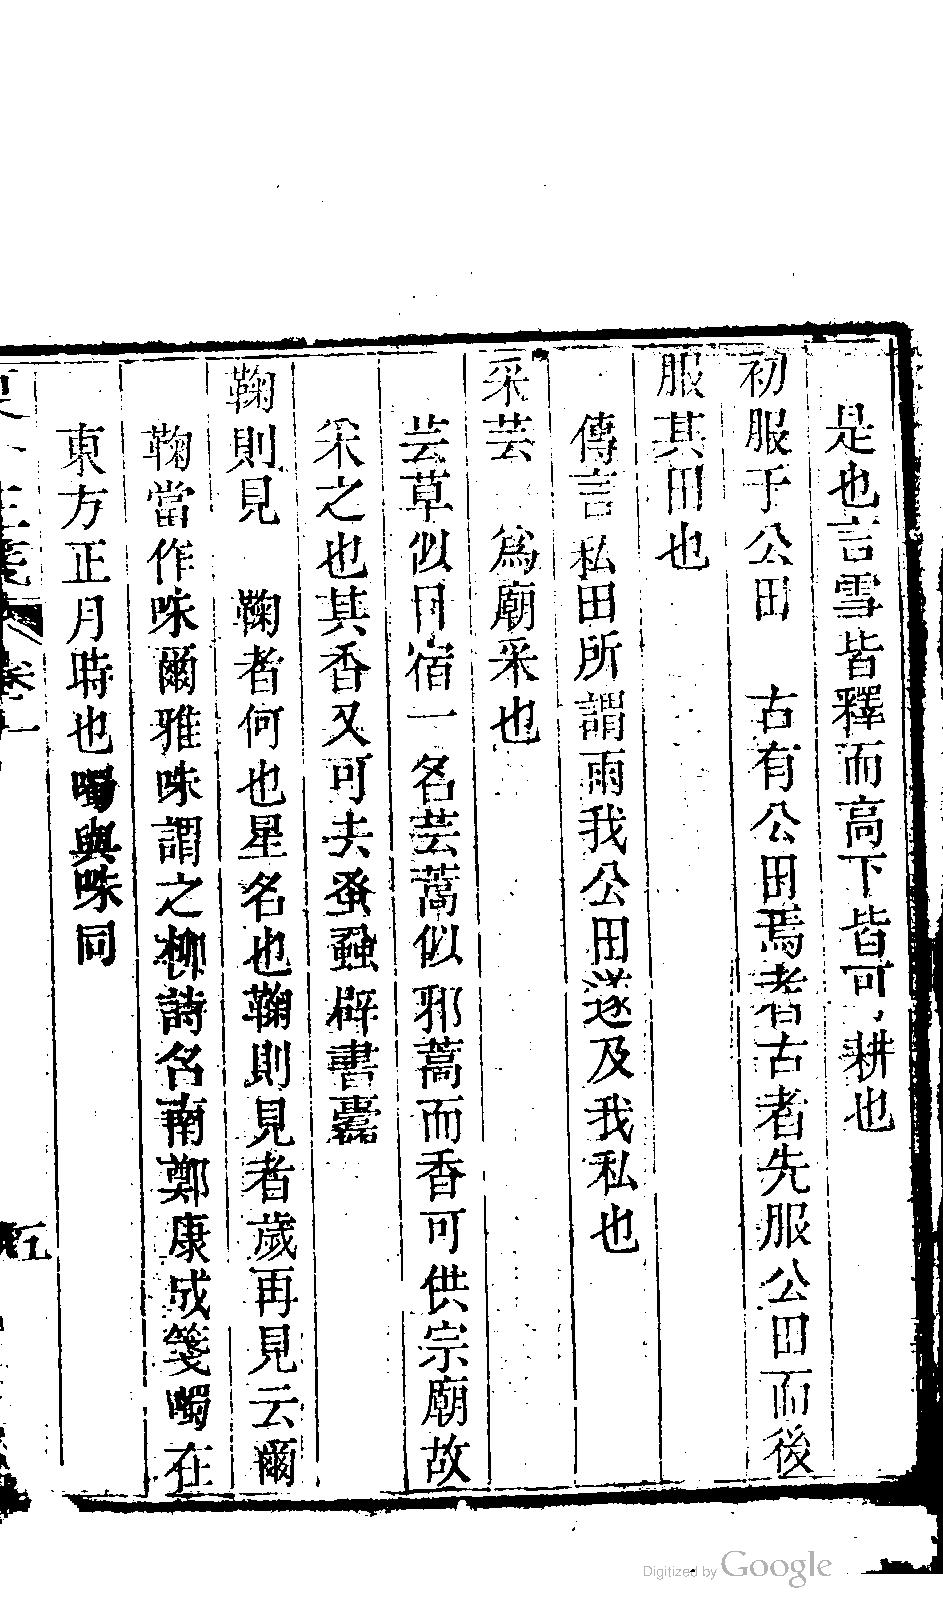 是也言雪皆釋而高下皆可耕也
初服于公田　古有公田焉者古者先服公田而後
服其田也
傳言私田所謂雨我公田遂及我私也
采芸　爲廟采也
芸草似目宿一名芸蒿似邪蒿而香可供宗廟故
采之也其香又可去蚤蝨辟書蠹
鞠則見　鞠者何也星名也鞠則見者歲再見云爾
鞠當作咮爾雅咮謂之柳詩召南鄭康成箋噣在
東方正月時也噣與咮同
五
Digitized by Google